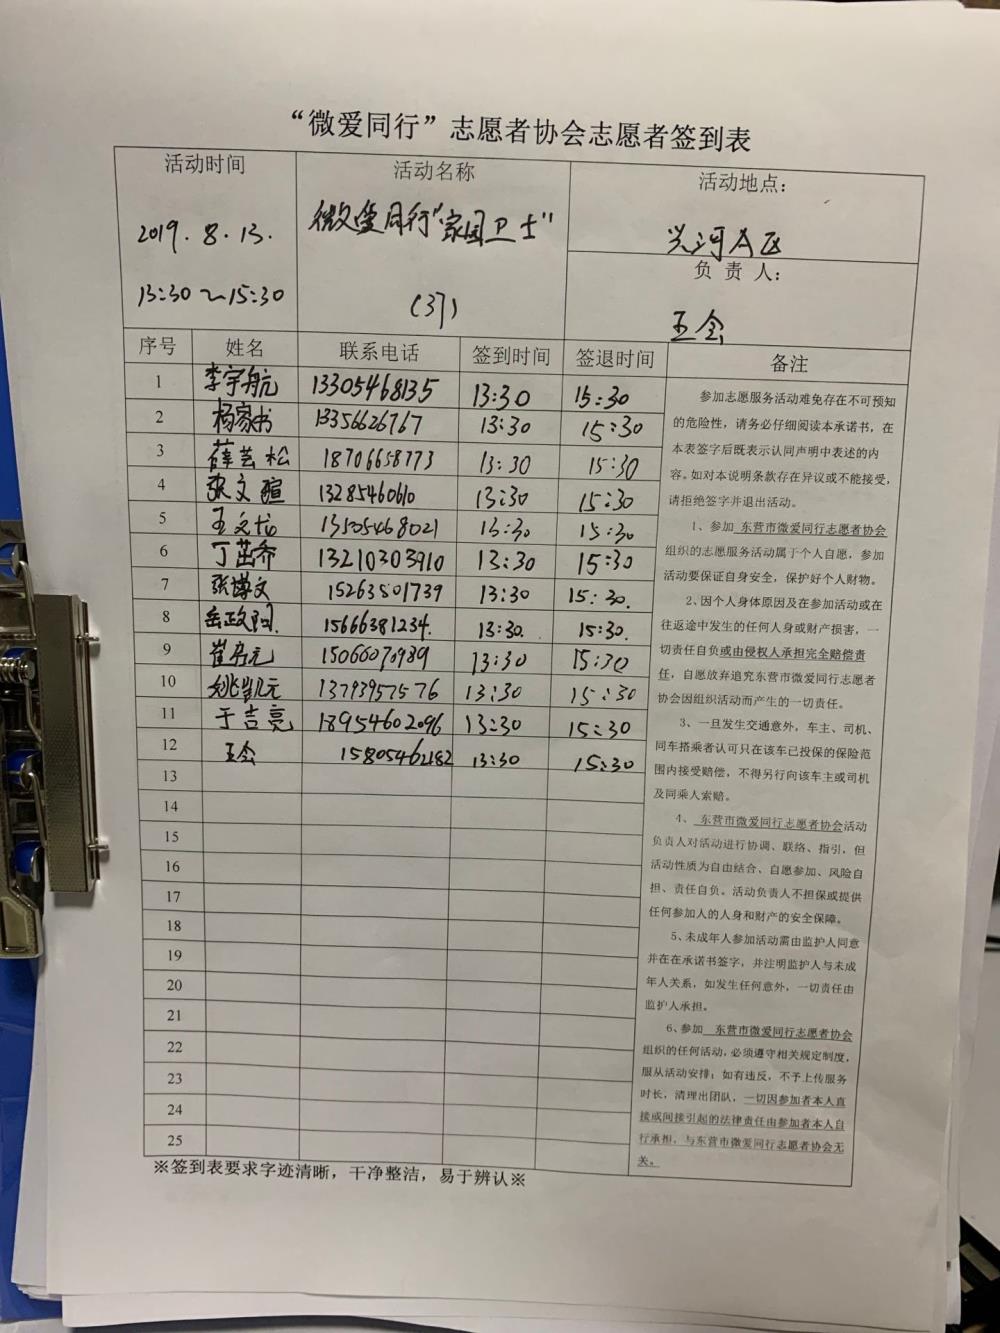 “微爱同行”志愿者协会志愿者签到表
活动时间
2019.8.13.
13:30~15:30
活动名称
微爱同行“家园卫士”
(37)
活动地点：
兴河A区
负 责 人：
王会
序号 姓名 联系电话 签到时间 签退时间 备注
1 李宇航 13305468135 13:30 15:30
2 杨家书 13356626767 13:30 15:30
3 薛芸松 18706658773 13:30 15:30
4 张文暄 13285460610 13:30 15:30
5 王文 13505468021 13:30 15:30
6 丁茁乔 13210303910 13:30 15:30
7 张博文 15263501739 13:30 15:30.
8 岳政阳. 15666381234. 13:30. 15:30.
9 崔元 15066070939 13:30 15:30
10 姚凯元 13793957576 13:30 15:30
11 于吉亮 18954602096 13:30 15:30
12 王会 15805462182 13:30 15:30
13
14
15
16
17
18
19
20
21
22
23
24
25
参加志愿服务活动难免存在不可预知
的危险性，请务必仔细阅读本承诺书，在
本表签字后既表示认同声明中表述的内
容。如对本说明条款存在异议或不能接受，
请拒绝签字并退出活动。
1、参加 东营市微爱同行志愿者协会
组织的志愿服务活动属于个人自愿，参加
活动要保证自身安全，保护好个人财物。
2、因个人身体原因及在参加活动或在
往返途中发生的任何人身或财产损害，一
切责任自负或由侵权人承担完全赔偿责
任，自愿放弃追究东营市微爱同行志愿者
协会因组织活动而产生的一切责任。
3、一旦发生交通意外，车主、司机、
同车搭乘者认可只在该车已投保的保险范
围内接受赔偿，不得另行向该车主或司机
及同乘人索赔。
4、 东营市微爱同行志愿者协会活动
负责人对活动进行协调、联络、指引，但
活动性质为自由结合、自愿参加、风险自
担、责任自负。活动负责人不担保或提供
任何参加人的人身和财产的安全保障。
5、未成年人参加活动需由监护人同意
并在在承诺书签字，并注明监护人与未成
年人关系，如发生任何意外，一切责任由
监护人承担。
6、参加 东营市微爱同行志愿者协会
组织的任何活动，必须遵守相关规定制度，
服从活动安排；如有违反，不予上传服务
时长，清理出团队，一切因参加者本人直
接或间接引起的法律责任由参加者本人自
行承担，与东营市微爱同行志愿者协会无
关。
※签到表要求字迹清晰，干净整洁，易于辨认※